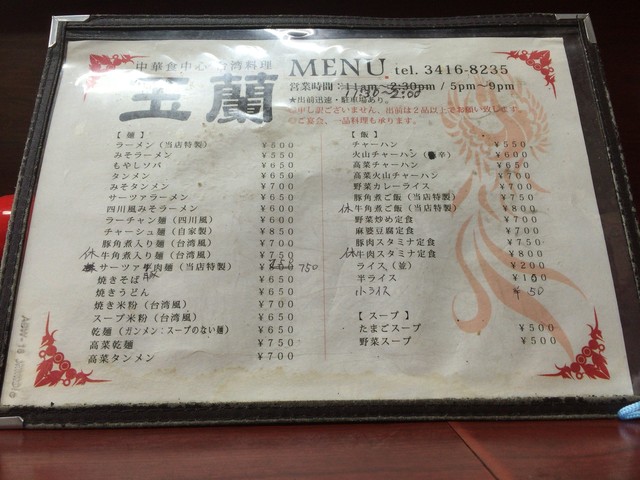 中華食中心・台湾料理
玉蘭
MENU tel. 3416-8235
営業時間：11am～2:30pm / 5pm～9pm
11:30～2:00
★出前迅速・駐車場あり。
◎申し訳ございません、出前は2品以上でお願い致します。
◎ご宴会、一品料理も承ります。
【麺】
ラーメン（当店特製） ¥600
みそラーメン ¥550
もやしソバ ¥650
タンメン ¥650
みそタンメン ¥700
サーツァラーメン ¥650
四川風みそラーメン ¥600
ラーチャン麺（四川風） ¥700
チャーシュ麺（自家製） ¥850
豚角煮入り麺（台湾風） ¥700
休 牛角煮入り麺（台湾風） ¥750
サーツァ牛肉麺（当店特製） ¥800 750
豚
焼きそば ¥650
焼きうどん ¥650
焼き米粉（台湾風） ¥700
スープ米粉（台湾風） ¥650
乾麺（ガンメン：スープのない麺） ¥650
高菜乾麺 ¥750
高菜タンメン ¥700
【飯】
チャーハン ¥550
火山チャーハン（辛） ¥600
高菜チャーハン ¥650
高菜火山チャーハン ¥700
野菜カレーライス ¥700
豚角煮ご飯（当店特製） ¥750
休 牛角煮ご飯（当店特製） ¥800
野菜炒め定食 ¥700
麻婆豆腐定食 ¥700
豚肉スタミナ定食 ¥750
休 牛肉スタミナ定食 ¥800
ライス（並） ¥200
半ライス ¥100
小ライス ¥50
【スープ】
たまごスープ ¥500
野菜スープ ¥500